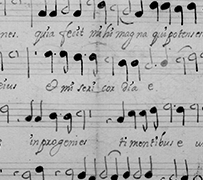 nes. quia fecit mihi magna qui potens es
dius E misericordia e
e in progenies timentibus e